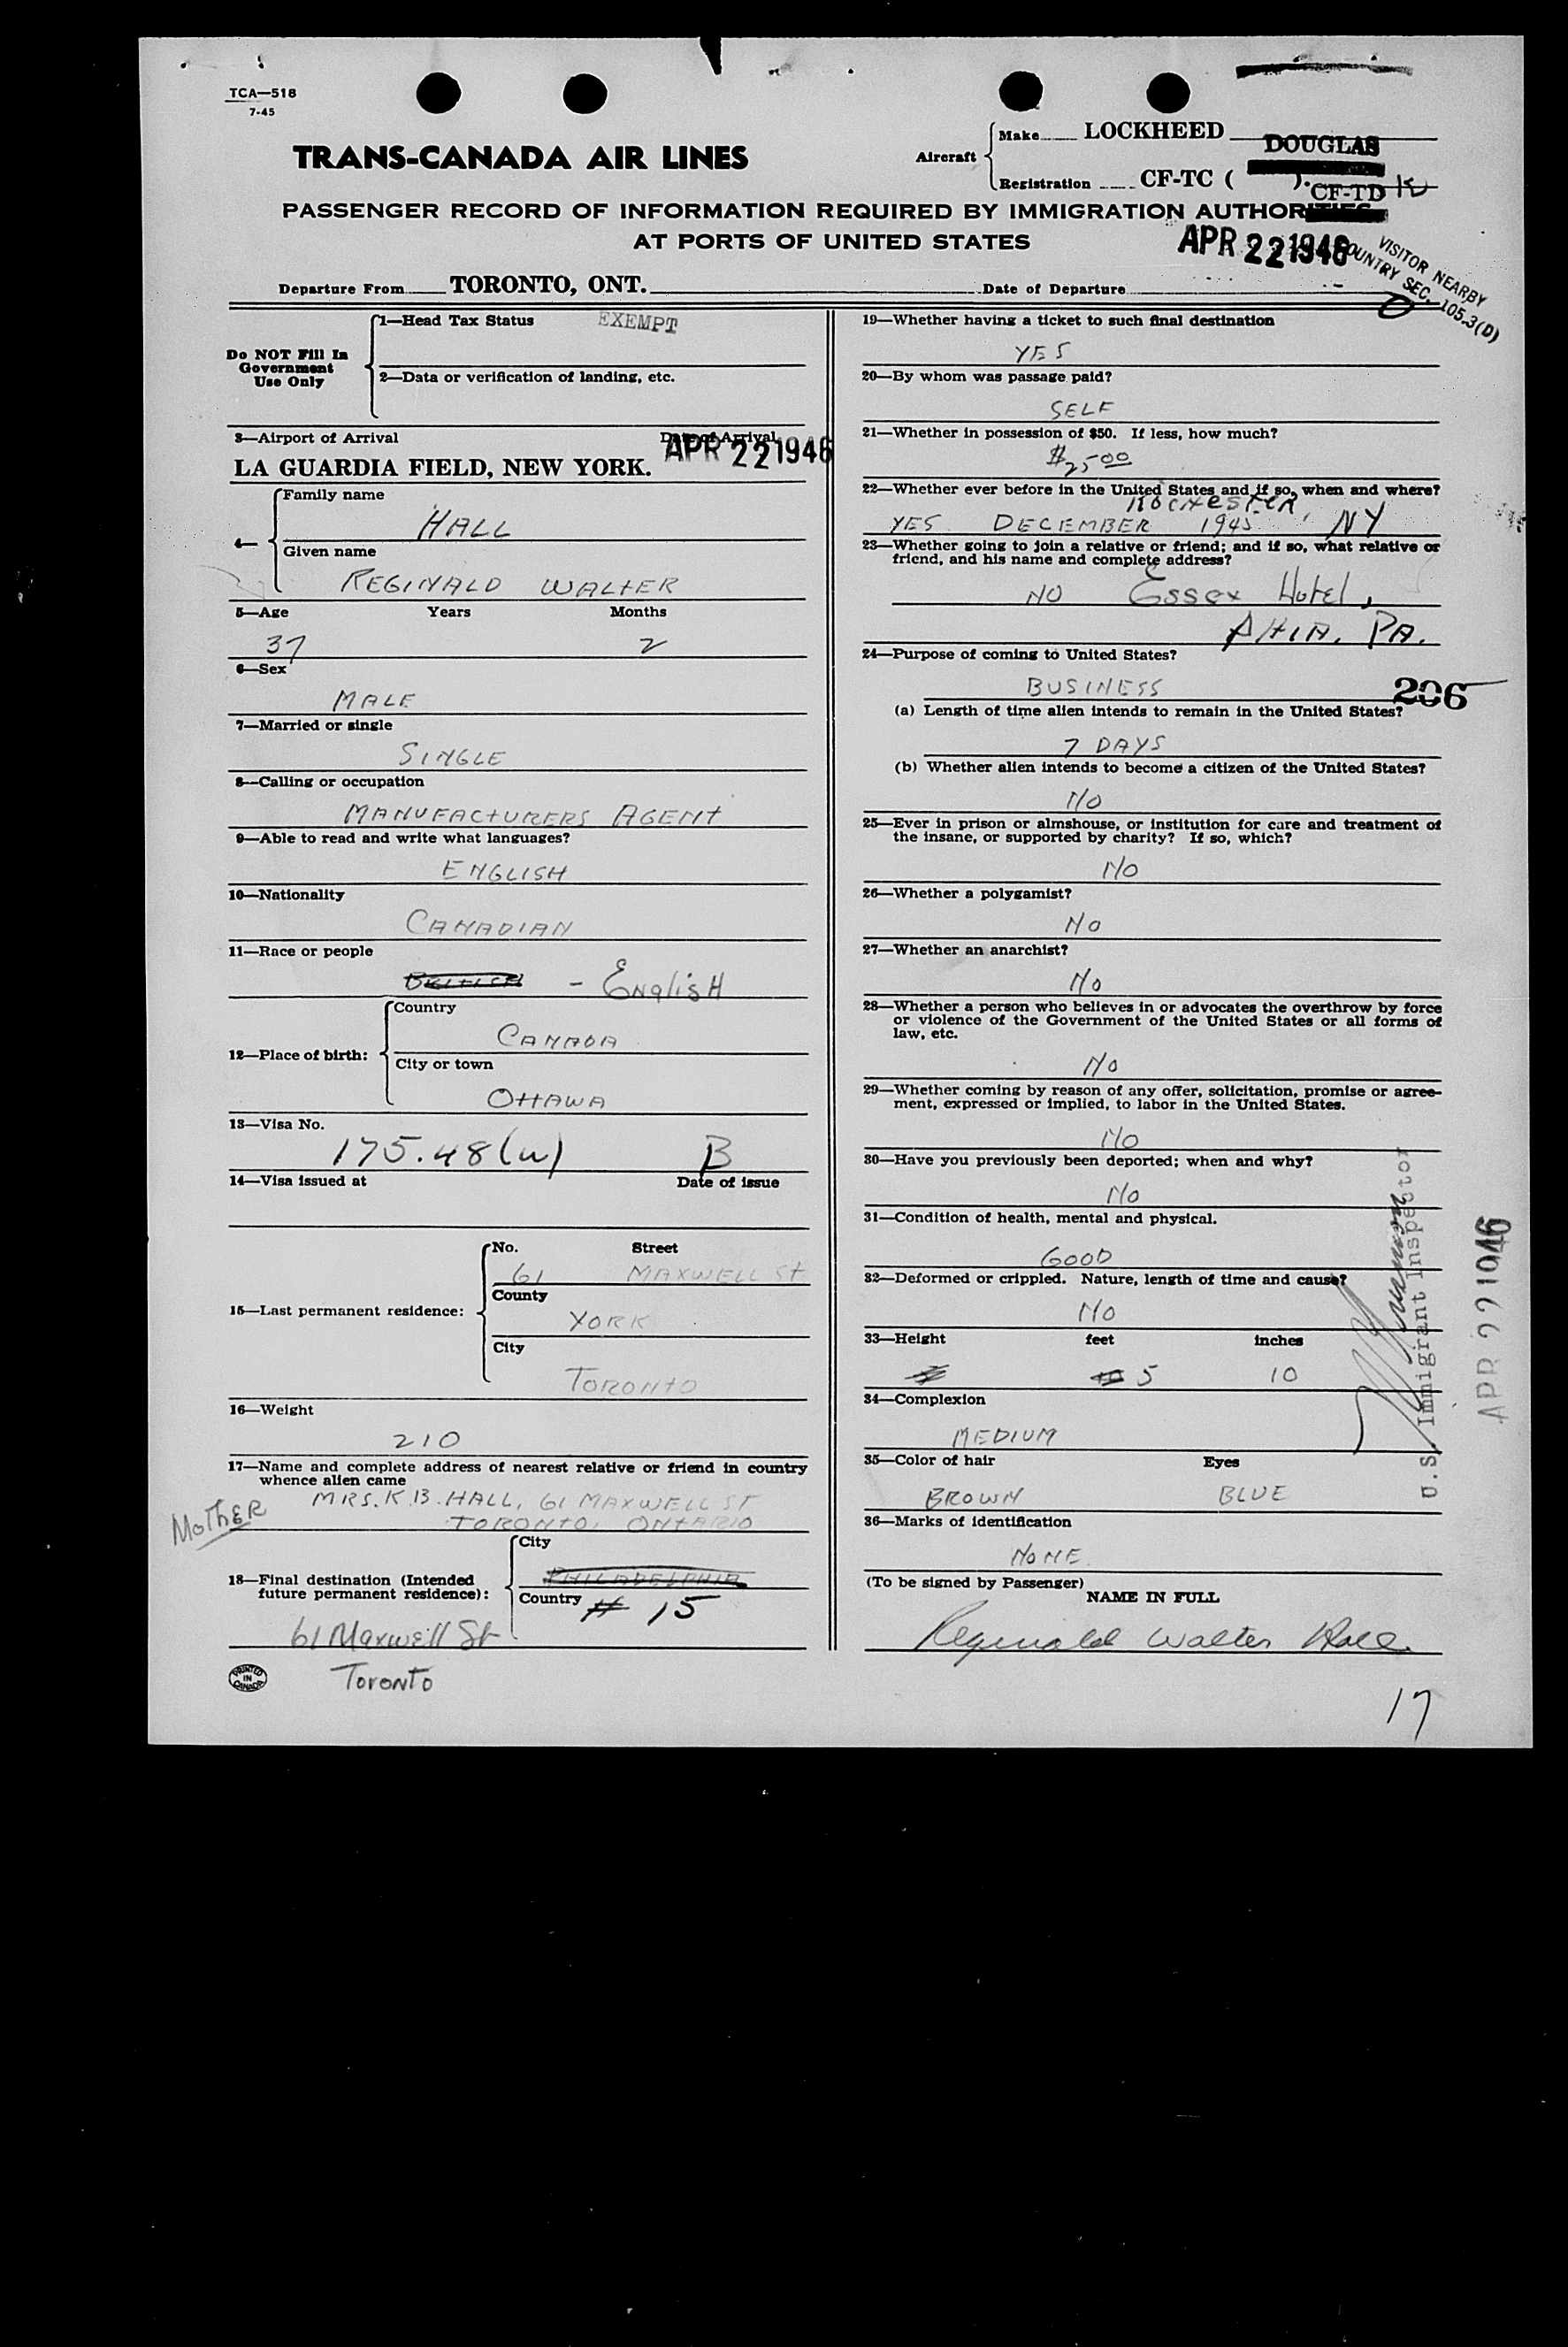 TCA—518
7-45
TRANS-CANADA AIR LINES
Aircraft
Make LOCKHEED DOUGLAS
Registration CF-TC ( ). CF-TD
PASSENGER RECORD OF INFORMATION REQUIRED BY IMMIGRATION AUTHORITIES
AT PORTS OF UNITED STATES
APR 22 1946
VISITOR NEARBY
COUNTRY SEC. 105.3(D)
Departure From TORONTO, ONT. Date of Departure
Do NOT Fill In
Government
Use Only
1—Head Tax Status EXEMPT
2—Data or verification of landing, etc.
3—Airport of Arrival Date of Arrival
LA GUARDIA FIELD, NEW YORK. APR 22 1946
4—
Family name
HALL
Given name
REGINALD WALTER
5—Age Years Months
37 2
6—Sex
MALE
7—Married or single
SINGLE
8—Calling or occupation
MANUFACTURERS AGENT
9—Able to read and write what languages?
ENGLISH
10—Nationality
CANADIAN
11—Race or people
BRITISH - EnglisH
12—Place of birth:
Country
CANADA
City or town
OTTAWA
13—Visa No.
175.48(w) B
14—Visa issued at Date of issue
15—Last permanent residence:
No. Street
61 MAXWELL St
County
YORK
City
TORONTO
16—Weight
210
17—Name and complete address of nearest relative or friend in country
whence alien came
MRS. K.B. HALL, 61 MAXWELL ST
MotHER
TORONTO, ONTARIO
18—Final destination (Intended
future permanent residence):
City
PHILADELPHIA
Country 15
61 Maxwell St
Toronto
PRINTED
IN
CANADA
19—Whether having a ticket to such final destination
YES
20—By whom was passage paid?
SELF
21—Whether in possession of $50. If less, how much?
$25.00
22—Whether ever before in the United States and if so, when and where?
ROCHESTER,
YES DECEMBER 1945 NY
23—Whether going to join a relative or friend; and if so, what relative or
friend, and his name and complete address?
NO Essex Hotel,
PHIA. PA.
24—Purpose of coming to United States?
BUSINESS 206
(a) Length of time alien intends to remain in the United States?
7 DAYS
(b) Whether alien intends to become a citizen of the United States?
NO
25—Ever in prison or almshouse, or institution for care and treatment of
the insane, or supported by charity? If so, which?
NO
26—Whether a polygamist?
NO
27—Whether an anarchist?
NO
28—Whether a person who believes in or advocates the overthrow by force
or violence of the Government of the United States or all forms of
law, etc.
NO
29—Whether coming by reason of any offer, solicitation, promise or agree-
ment, expressed or implied, to labor in the United States.
NO
30—Have you previously been deported; when and why?
NO
31—Condition of health, mental and physical.
GOOD
32—Deformed or crippled. Nature, length of time and cause?
NO
33—Height feet inches
5 10
34—Complexion
MEDIUM
35—Color of hair Eyes
BROWN BLUE
36—Marks of identification
NONE
(To be signed by Passenger)
NAME IN FULL
Reginald Walter Hall
U.S. Immigrant Inspector
APR 22 1946
17